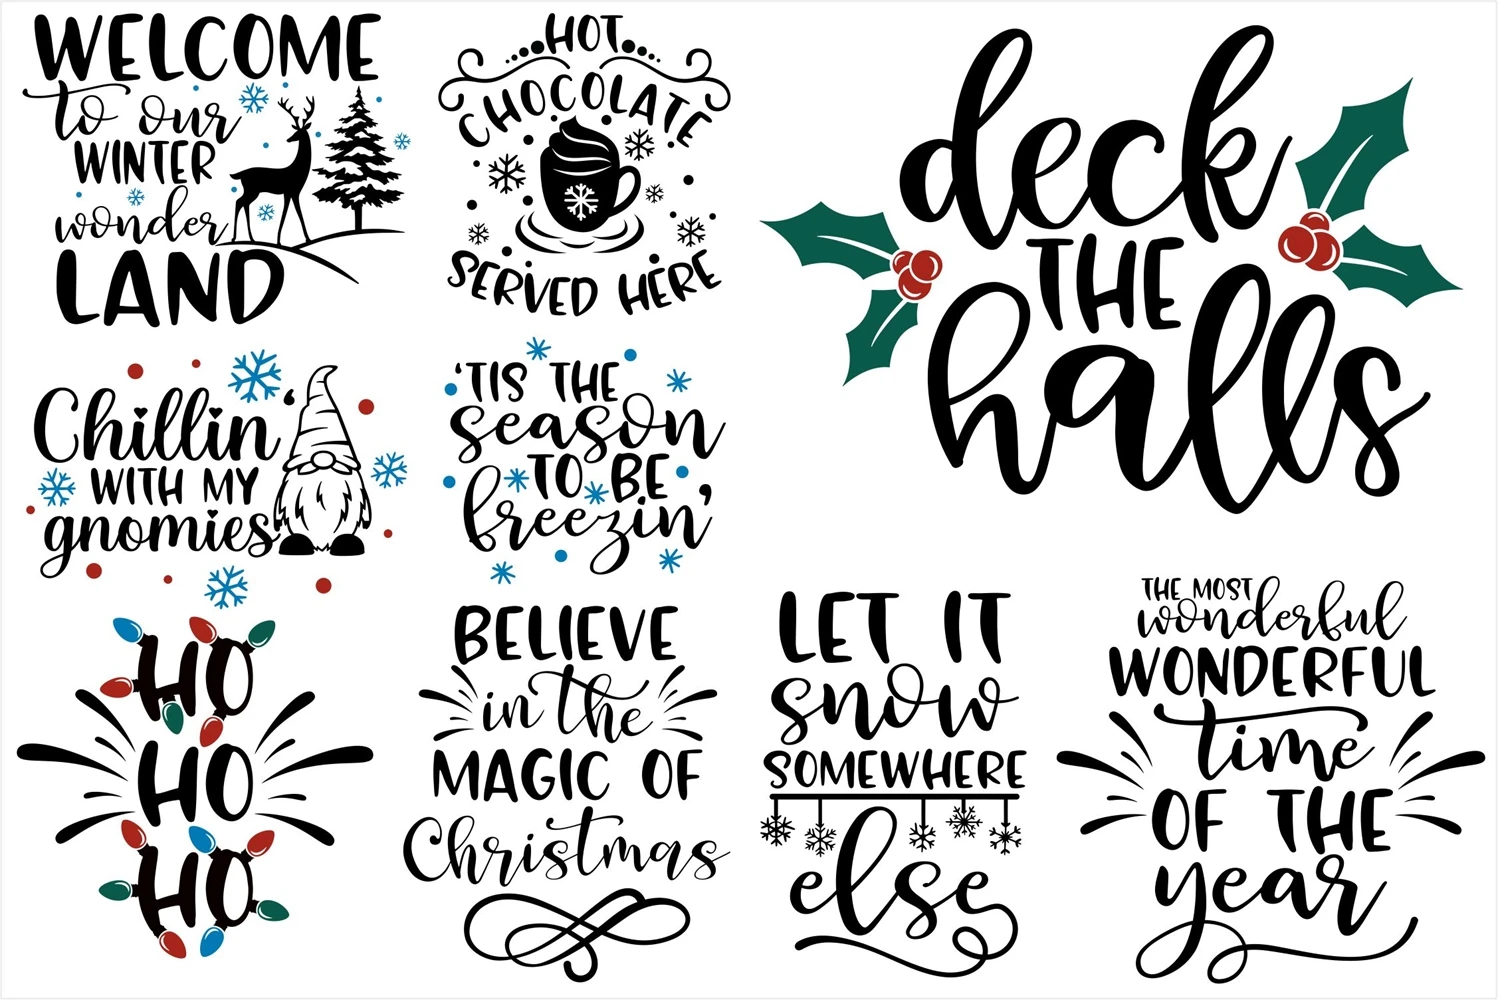 WELCOME
to our
WINTER
wonder
LAND
HOT
CHOCOLATE
SERVED HERE
deck
THE
halls
Chillin'
WITH MY
gnomies
'TIS THE
season
TO BE
freezin'
HO
HO
HO
BELIEVE
in the
MAGIC OF
Christmas
LET IT
snow
SOMEWHERE
else
THE MOST
wonderful
WONDERFUL
time
OF THE
year